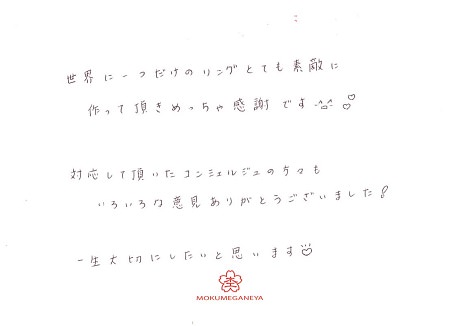 世界に一つだけのリングとても素敵に
作って頂きめっちゃ感謝です^^♡
対応して頂いたコンシェルジュの方々も
いろいろな意見ありがとうございました!
一生大切にしたいと思います♡
MOKUMEGANEYA